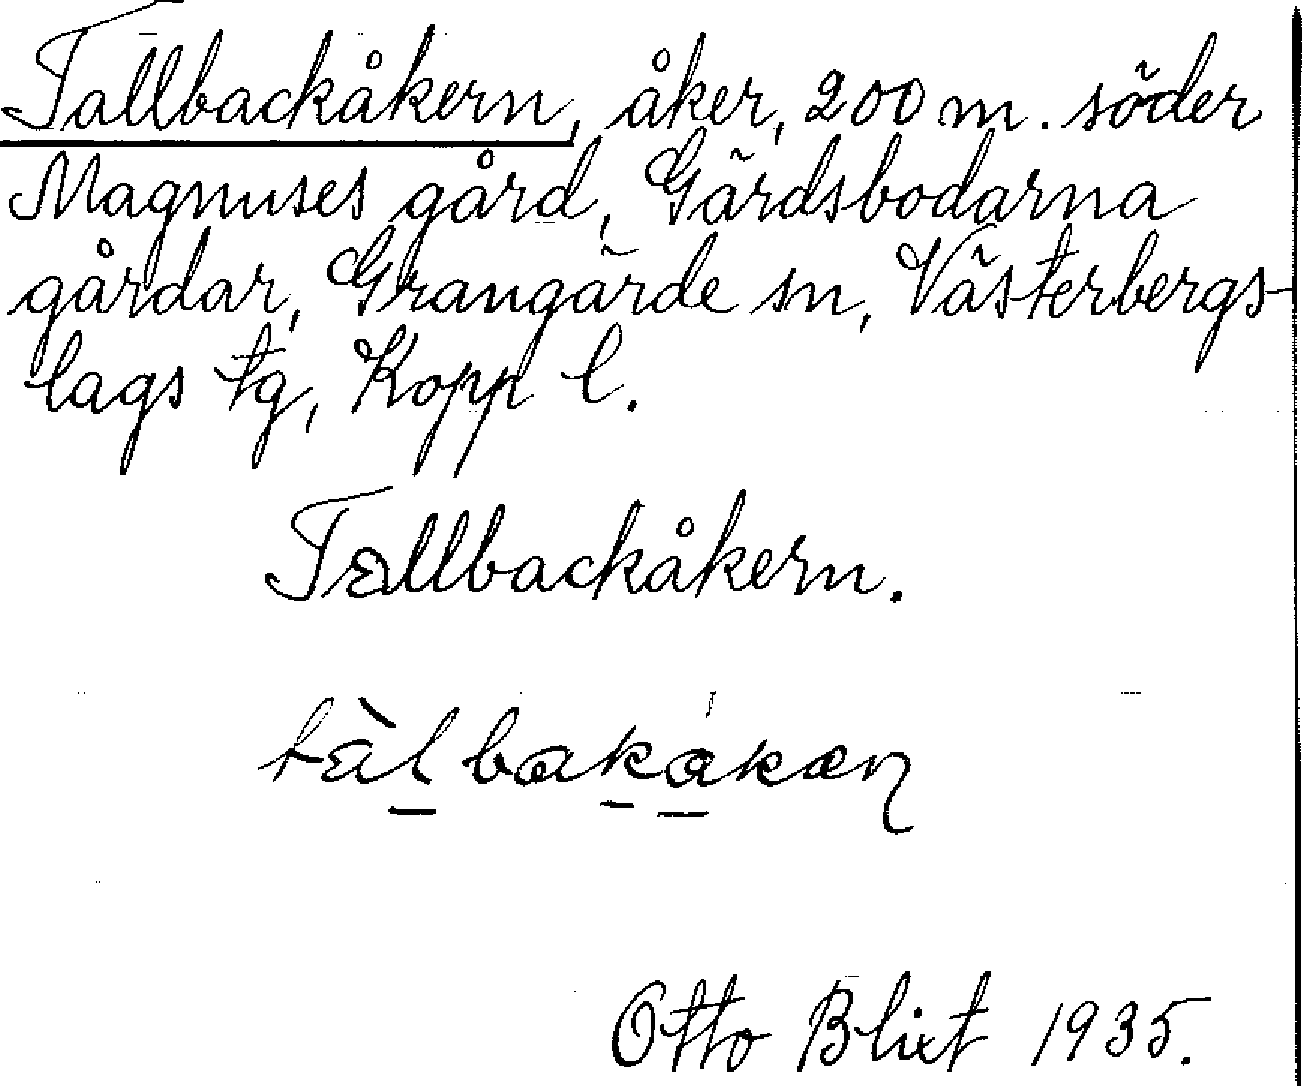 Tallbackåkern, åker, 200 m. söder
Magnuses gård, Gärdsbodarna
gårdar, Grangärde sn, Västerbergs-
lags tg, Kopp l.
Tallbackåkern.
Otto Blixt 1935.